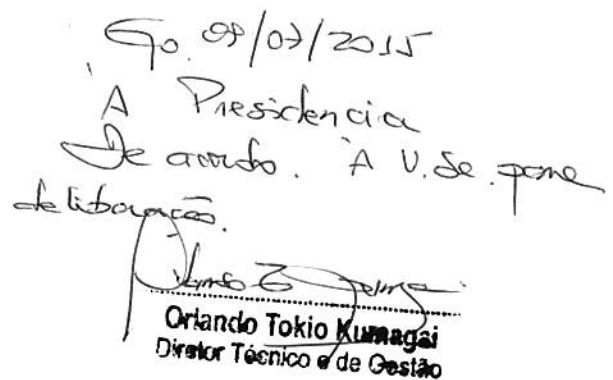 Go. 09/07/2015
À Presidencia
De acordo. À V. Sa. para
deliberação.
Orlando Tokio Kumagai
Diretor Técnico e de Gestão